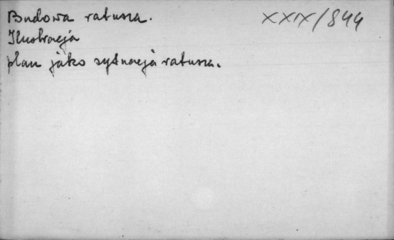 Budowa ratusza. XXIX/844
Ilustracja
plan jako sytuacja ratusza.